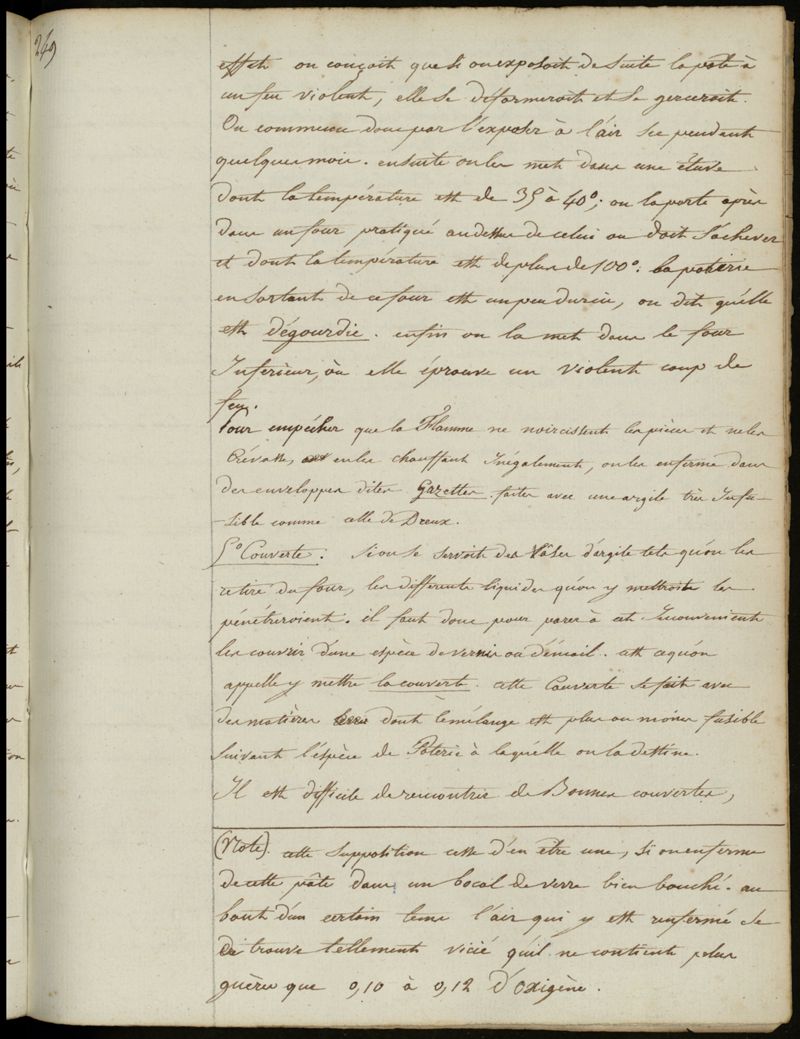 249
effet on conçoit que si on exposoit de suite la pâte à
un feu violent, elle se déformeroit et se gerceroit.
On commence donc par l'exposer à l'air sec pendant
quelques mois. ensuite on les met dans une étuve
dont la température est de 35 à 40°; on la porte après
dans un four pratiqué au dessus de celui ou doit s'achever
et dont la température est de plus de 100°: la poterie
en sortant de ce four est un peu durcie, on dit qu'elle
est dégourdie. enfin on la met dans le four
Inférieur, où elle éprouve un violent coup de
feu.
Pour empécher que la Flamme ne noircissent les pièces et ne les
Crévasse, en les chauffant Inégalement, on les enferme dans
des enveloppes dites Gazettes faites avec une argile très Infu-
-sible comme celle de Dreux.
5° Couverte: Si on se servoit des Vâses d'argile tels qu'on les
retire du four, les différents liquides qu'on y mettroit les
pénétreroient. il faut donc pour parer à cet Inconvénient
les couvrir d'une espèce de vernis ou d'émail. c'est ce qu'on
appelle y mettre la couverte. cette Couverte se fait avec
des matières dont le mélange est plus ou moins fusible
suivant l'espèce de Poterie à laquelle on la destine.
Il est difficile de rencontrer de Bonnes couvertes,
(Note). cette Supposition cesse d'en être une, si on enferme
de cette pâte dans un bocal de verre bien bouché. au
bout d'un certain tems l'air qui y est renfermé se
trouve tellement vicié qu'il ne contient plus
guères que 0,10 à 0,12 d'oxigène.